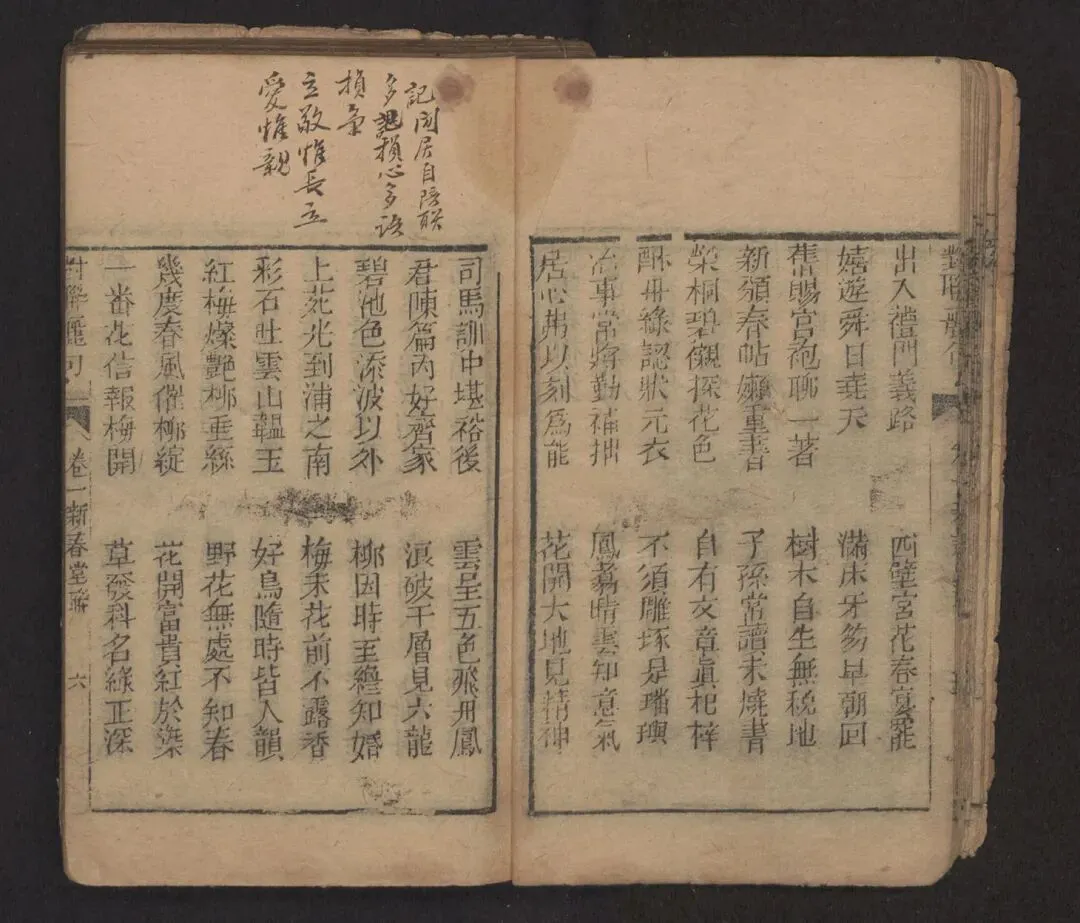 對聯麗句
出入禮門義路
嬉遊舜日堯天
舊賜宮袍聊一著
新頒春帖嬾重書
榮桐碧襯探花色
綠認狀元衣
治事常將勤補拙
居心弗以刻為能
西壁宮花春宴罷
滿床牙笏早朝回
樹木自生無稅地
子孫常讀未燒書
自有文章眞杞梓
不須雕琢是璠璵
鳳翥晴雲知意氣
花開大地見精神
記閑居自陪联
多記損心多語
損氣
立敬惟長立
愛惟親
司馬訓中堪裕後
君陳篇內好齊家
碧池色添波以外
上苑光到浦之南
彩石吐雲山韞玉
紅梅燦艷柳垂絲
幾度春風催柳綻
一番花信報梅開
雲呈五色飛丹鳳
浪破千層見六龍
柳因時至纔知婚
梅未花前不露香
好鳥隨時皆入韻
野花無處不知春
花開富貴紅於染
草發科名綠正深
對聯麗句 卷一新春堂聯 六